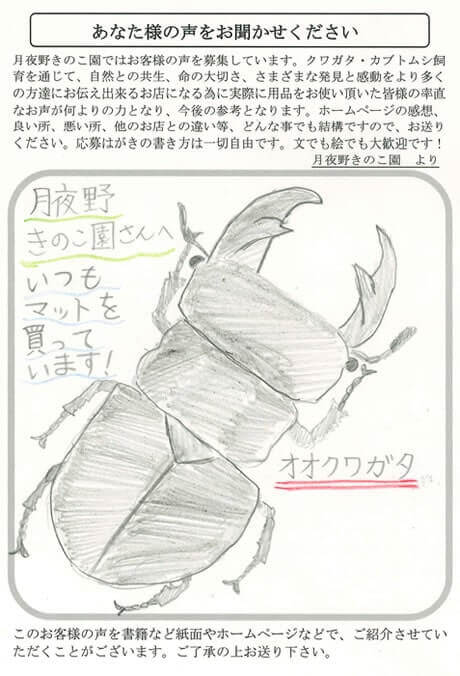 あなた様の声をお聞かせください
月夜野きのこ園ではお客様の声を募集しています。クワガタ・カブトムシ飼
育を通じて、自然との共生、命の大切さ、さまざまな発見と感動をより多く
の方達にお伝え出来るお店になる為に実際に用品をお使い頂いた皆様の率直
なお声が何よりの力となり、今後の参考となります。ホームページの感想、
良い所、悪い所、他のお店との違い等、どんな事でも結構ですので、お送り
ください。応募はがきの書き方は一切自由です。文でも絵でも大歓迎です！
月夜野きのこ園　より
月夜野
きのこ園さんへ
いつも
マットを
買って
います！
オオクワガタ
このお客様の声を書籍など紙面やホームページなどで、ご紹介させてい
ただくことがございます。ご了承の上お送り下さい。